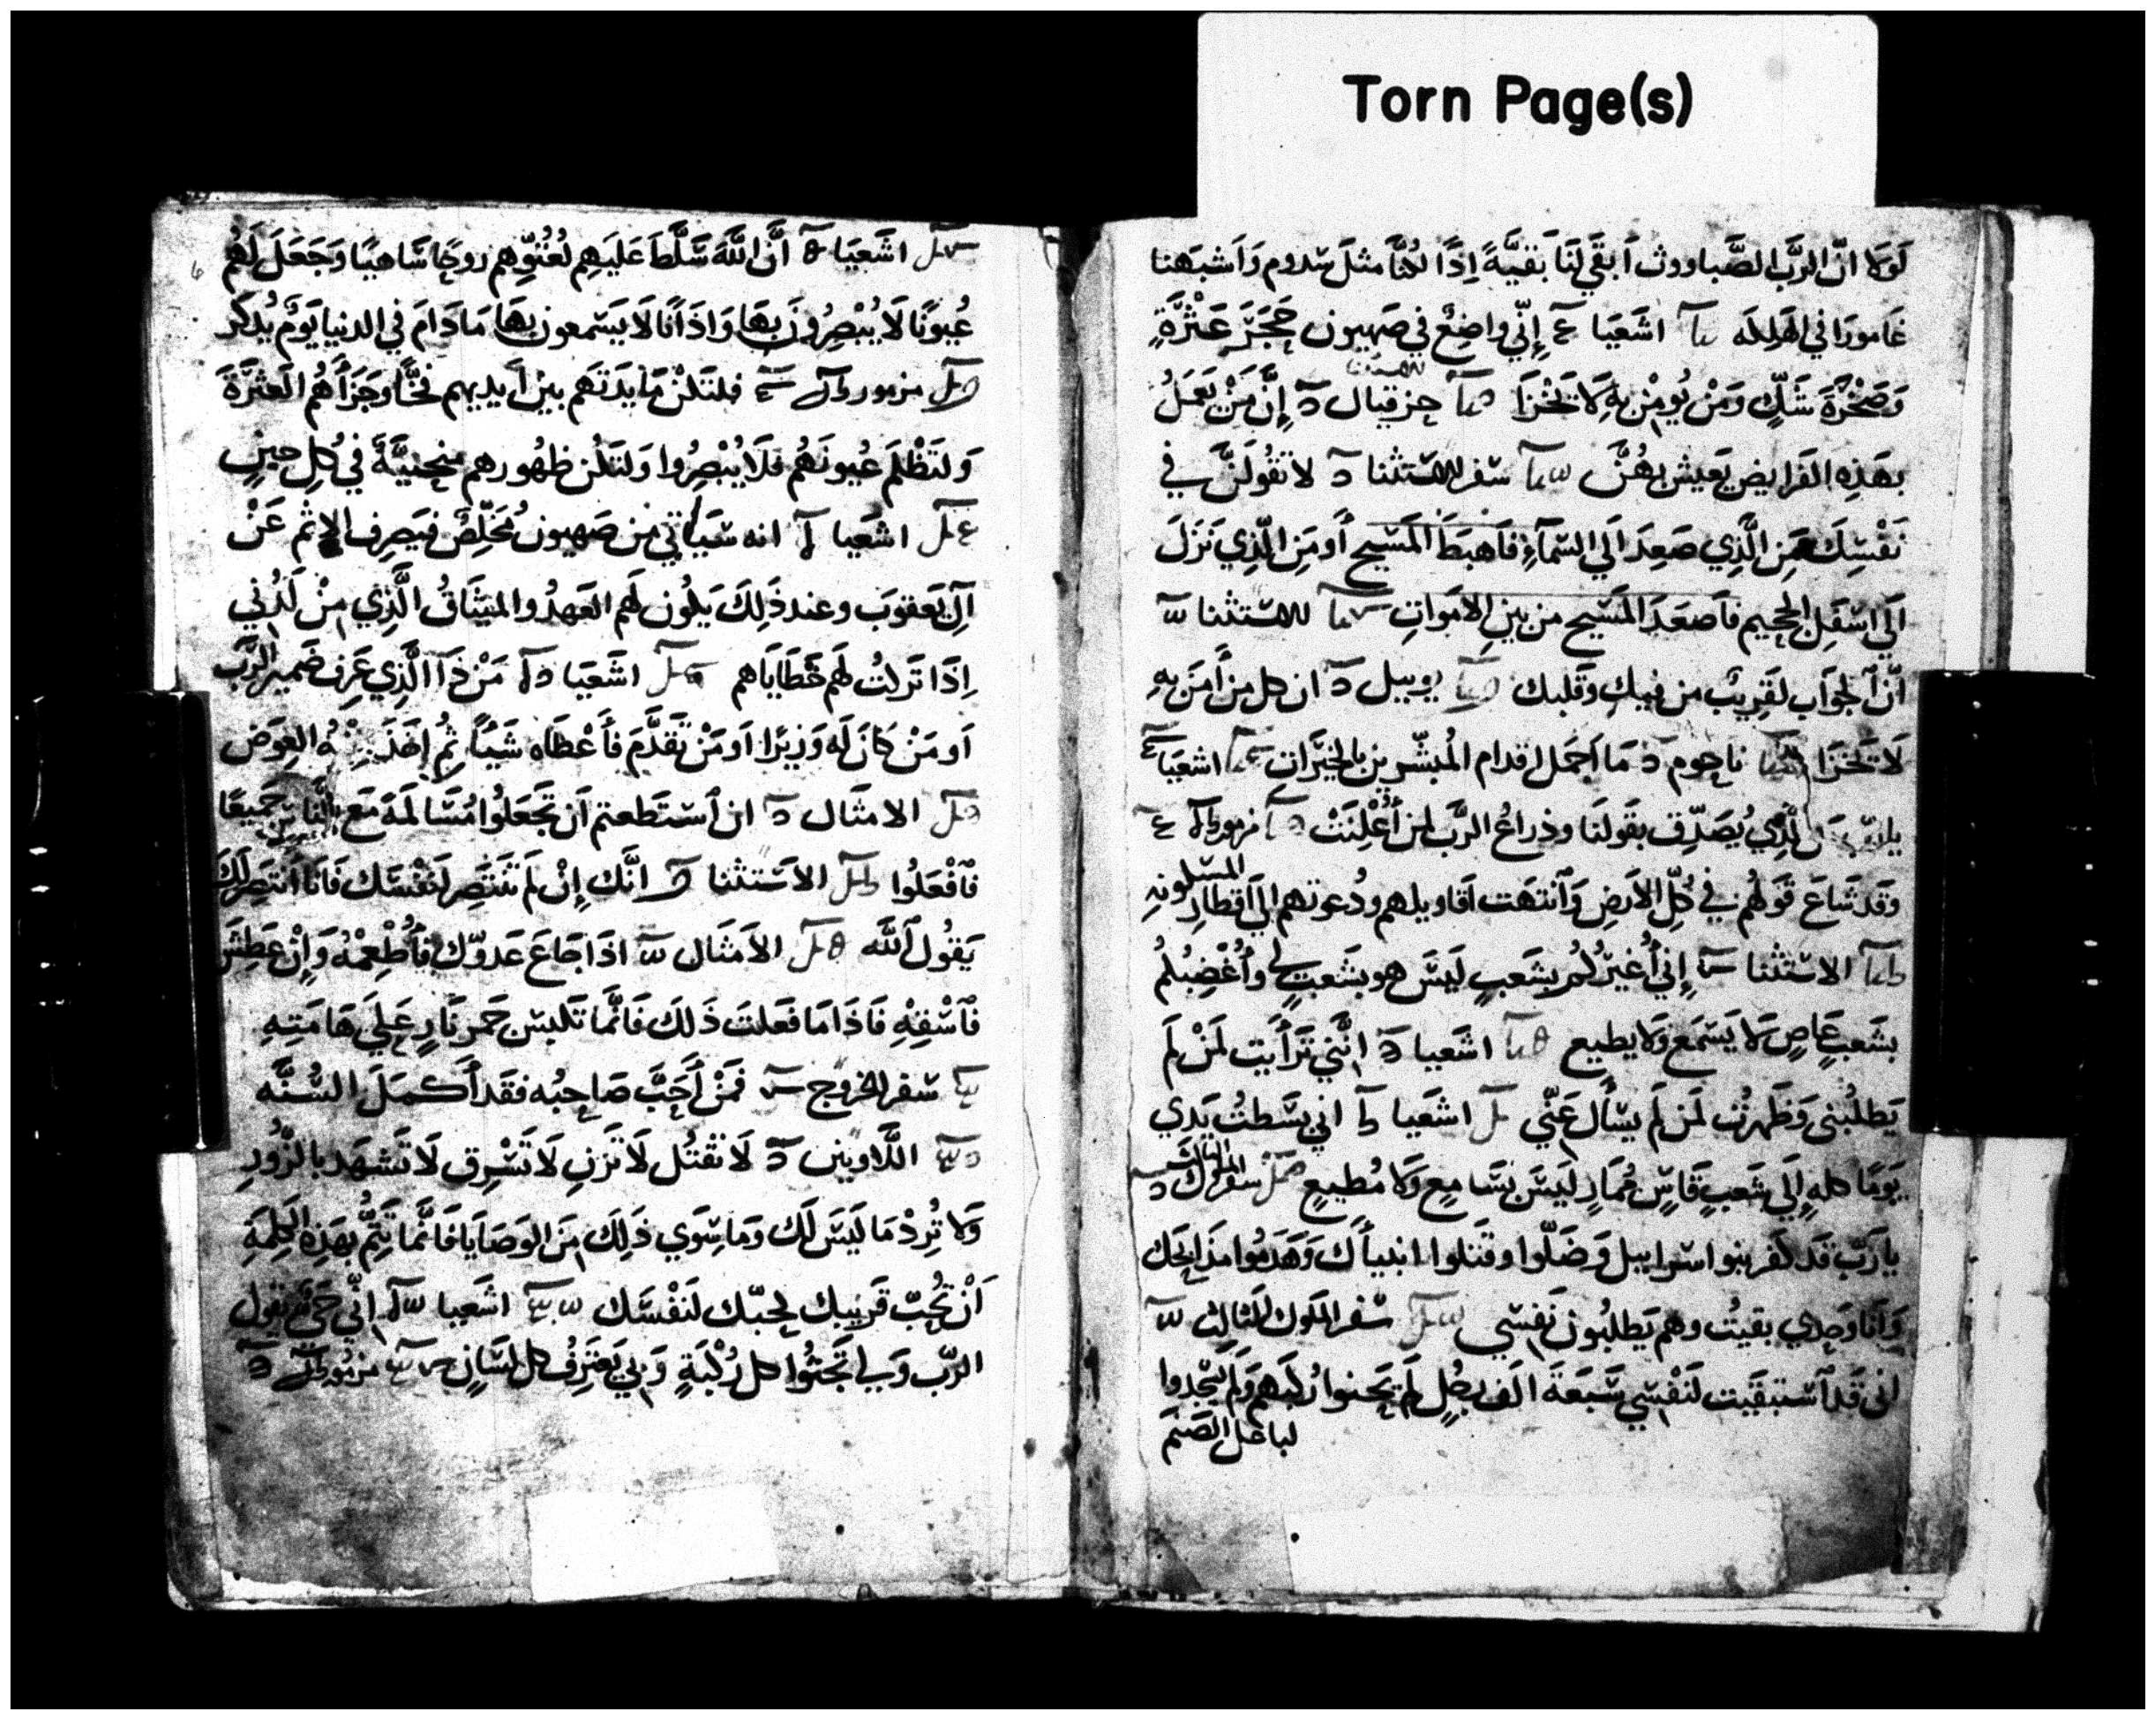 Torn Page(s)
لَولَا انّ الرَّبَّ الصَّباووث اَبقَي لَنَا بَقيَّةً اِذًا لكُنَّا مثلَ سَدوم وَاَشبَهنا
غَامورَا في الهَلكه اشَعيَا إنّي واضِعٌ في صَهيون حَجَرَ عَثْرَةٍ
وَصَخْرَةَ شَكٍّ وَمَنْ يُومِنْ بِهِ لَا يَخْزَا حزقيال إنَّ مَنْ يَعمَلُ
بهَذِهِ الفَرايض يَعيش بهُنَّ سفر الاستثنا لا تقُولَنَّ في
نَفْسِكَ مَنِ الَّذِي صَعِدَ اَلي السَّمآءِ فَاَهبَطَ المَسيح أَو مَنِ الَّذِي نَزَلَ
اَلي اسْفَل الجحيم فاَصعَدَ المَسيح من بين الاَموَاتِ الاستثنا
انَّ الجوَاب لقَرِيبٌ من فيكِ وقَلبك يوييل ان كل من أمَنَ بهِ
لَا يَخْزَا ناحوم مَا اَجمَل اقدام المُبشّرين بالخيَرَات اشعيَا
الَّذِي يُصَدِّق بقَولنَا وذراعُ الرَّبّ لمن أُعْلِنَتْ مزمور
وَقَد شَاعَ قَولهُم في كُلِّ الاَرضِ وَانتهَت اقَاويلهم ودُعوتهم الي اَقطَارِ المسكونهِ
الاستثنا إِني أُغَيرُكُم بشَعبٍ لَيسَ هو بشَعبٍ لي وأُغْضِبُكُم
بشَعبٍ عَاصٍ لَا يَسمَع وَلَا يطيع اشَعيا انَّني تَرَأَيت لمَنْ لَم
يَطلُبُني وَظَهَرتُ لمَن لَم يسأل عَنِّي اشعَيا اني بسَطتُ يَدي
يَومًا كلهِ إِلَي شَعبٍ قَاسٍ مُمَارٍ لَيسَ بسَامِعٍ وَلَا مُطيعٍ سفر الملوك الثالث
يارَبّ قَد كفَر بنوا اسرابيل وَضَلّوا وقَتلوا انبيأَك وَهَدَموا مذَابحَك
وَاَنَا وَحدي بقيتُ وهم يَطلبُون نَفسي سفر الملوك الثالث
اني قَد اَستَبقَيت لنَفْسي سَبعَةَ الَف رجُلٍ لَم يَحنوا رُكبَهم وَلَم يسْجُدوا
لباعل الصَنَم
اشَعيَا أَنَّ اللَّهَ سَلَّطَ عَلَيهم لعُتُوّهم روحًا سَاهيًا وَجَعَلَ لَهُم
عُيونًا لَا يُبْصِرُونَ بهَا وَاذَانًا لَا يَسمعون بهَا مَا دَامَ في الدنيا يَومٌ يُذكَر
مزمور فلتَكنْ مَايدَتهَم بينَ اَيديهم فَخًّا وجَزَأُهُم العَثرَةَ
وَلتَظْلَم عُيونَهُم فلَا يُبْصِرُوا وَلتَكُن ظهُورهم مُنحنيَّةً في كُلِ حينٍ
اشعَيا انه سَيَأتي من صَهيون مُخَلِّصٌ فيَصرِف الاِثم عَنْ
آلِ يَعقوبَ وعند ذَلِكَ يَكُون لهَم العَهدُ والميثَاقُ الَّذِي مِنْ لَدُنِي
اِذَا تَركتُ لهَم خَطَايَاهم اشَعيَا مَنْ ذَا الَّذِي عَرِف ضَمير الرَّبّ
اَو مَنْ كَانَ لَه وَزِيرًا اَو مَنْ تَقَدَّمَ فأَعْطَاه شَيْئًا ثم العِوَض
الامثَال ان اَستَطَعتم اَن تَجعَلُوا مُسَالمَةً مَع النَّاس جَميعًا
فَاَفْعَلُوا الاَستثنا انَّك إِنْ لَم تَنتَصِر لنَفسَك فَانَا اَنتَصِر لَكَ
يَقُول اللَّه الاَمثَال اذَا جَاعَ عَدوّك فأَطْعِمْهُ وَإِنْ عَطِشَ
فَاَسْقِهِ فَاذَا مَا فَعلتَ ذَلكَ فَانَّما تَكبس جَمر نَارٍ عَلَي هَامَتِهِ
سفر الخروج فمَنْ أَحَبَّ صَاحِبُه فقَد أَكمَلَ السُّنَّه
اللَّاويين لَا تقتُل لَا تَزنِ لَا تَسْرِق لَا تَشهَد بالزُّورِ
وَلَا تُرِدْ مَا لَيسَ لَك وَمَا سِوَي ذَلِكَ مِنَ الوَصَايَا فَانَّما يَتِمُّ بهَذِهِ الكلِمَةِ
اَنْ تُحِبّ قَريبك لحُبّك لنَفْسَك اشَعيا انِّي حَيٌّ يَقول
الرّبّ وَلي تَجثُوا كل رُكْبَةٍ وَبي يَعتَرِفُ كل لسَانٍ مزمور